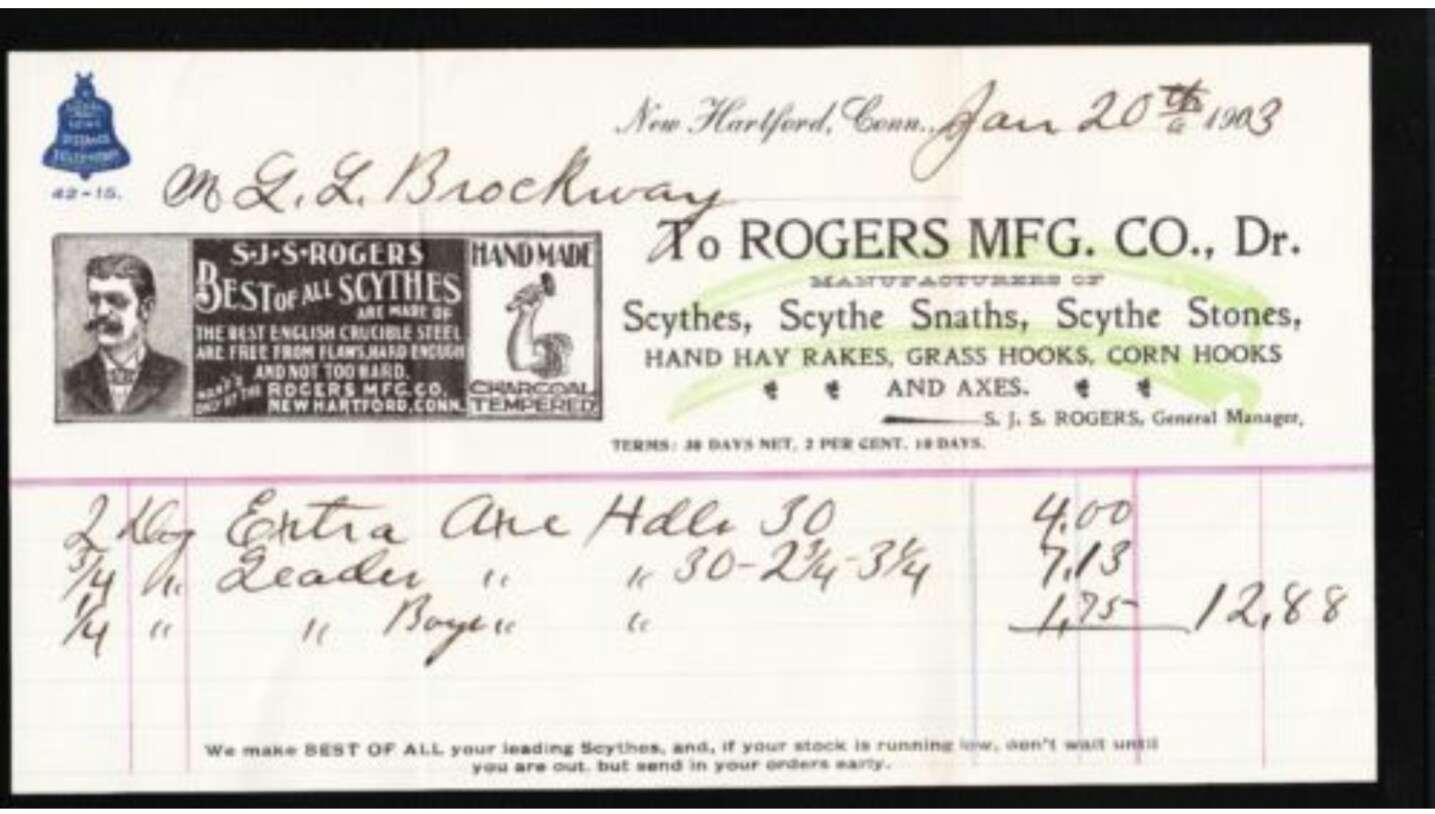 LOCAL
LONG
DISTANCE
TELEPHONE
42-15.
New Hartford, Conn., Jan 20th 1903
M L. L. Brockway
To ROGERS MFG. CO., Dr.
MANUFACTURERS OF
Scythes, Scythe Snaths, Scythe Stones,
HAND HAY RAKES, GRASS HOOKS, CORN HOOKS
AND AXES.
S. J. S. ROGERS, General Manager,
TERMS: 30 DAYS NET, 2 PER CENT. 10 DAYS.
S·J·S·ROGERS
BEST OF ALL SCYTHES
ARE MADE OF
THE BEST ENGLISH CRUCIBLE STEEL
ARE FREE FROM FLAWS, HARD ENOUGH
AND NOT TOO HARD.
ONLY BY THE ROGERS MFG. CO.
NEW HARTFORD, CONN.
HAND MADE
CHARCOAL
TEMPERED
2 Doz Extra Axe Hdls 30 4.00
3/4 " Leader " " 30-2 3/4-3 1/4 7,13
1/4 " " Boys " " 1,75 12,88
We make BEST OF ALL your leading Scythes, and, if your stock is running low, don't wait until
you are out, but send in your orders early.